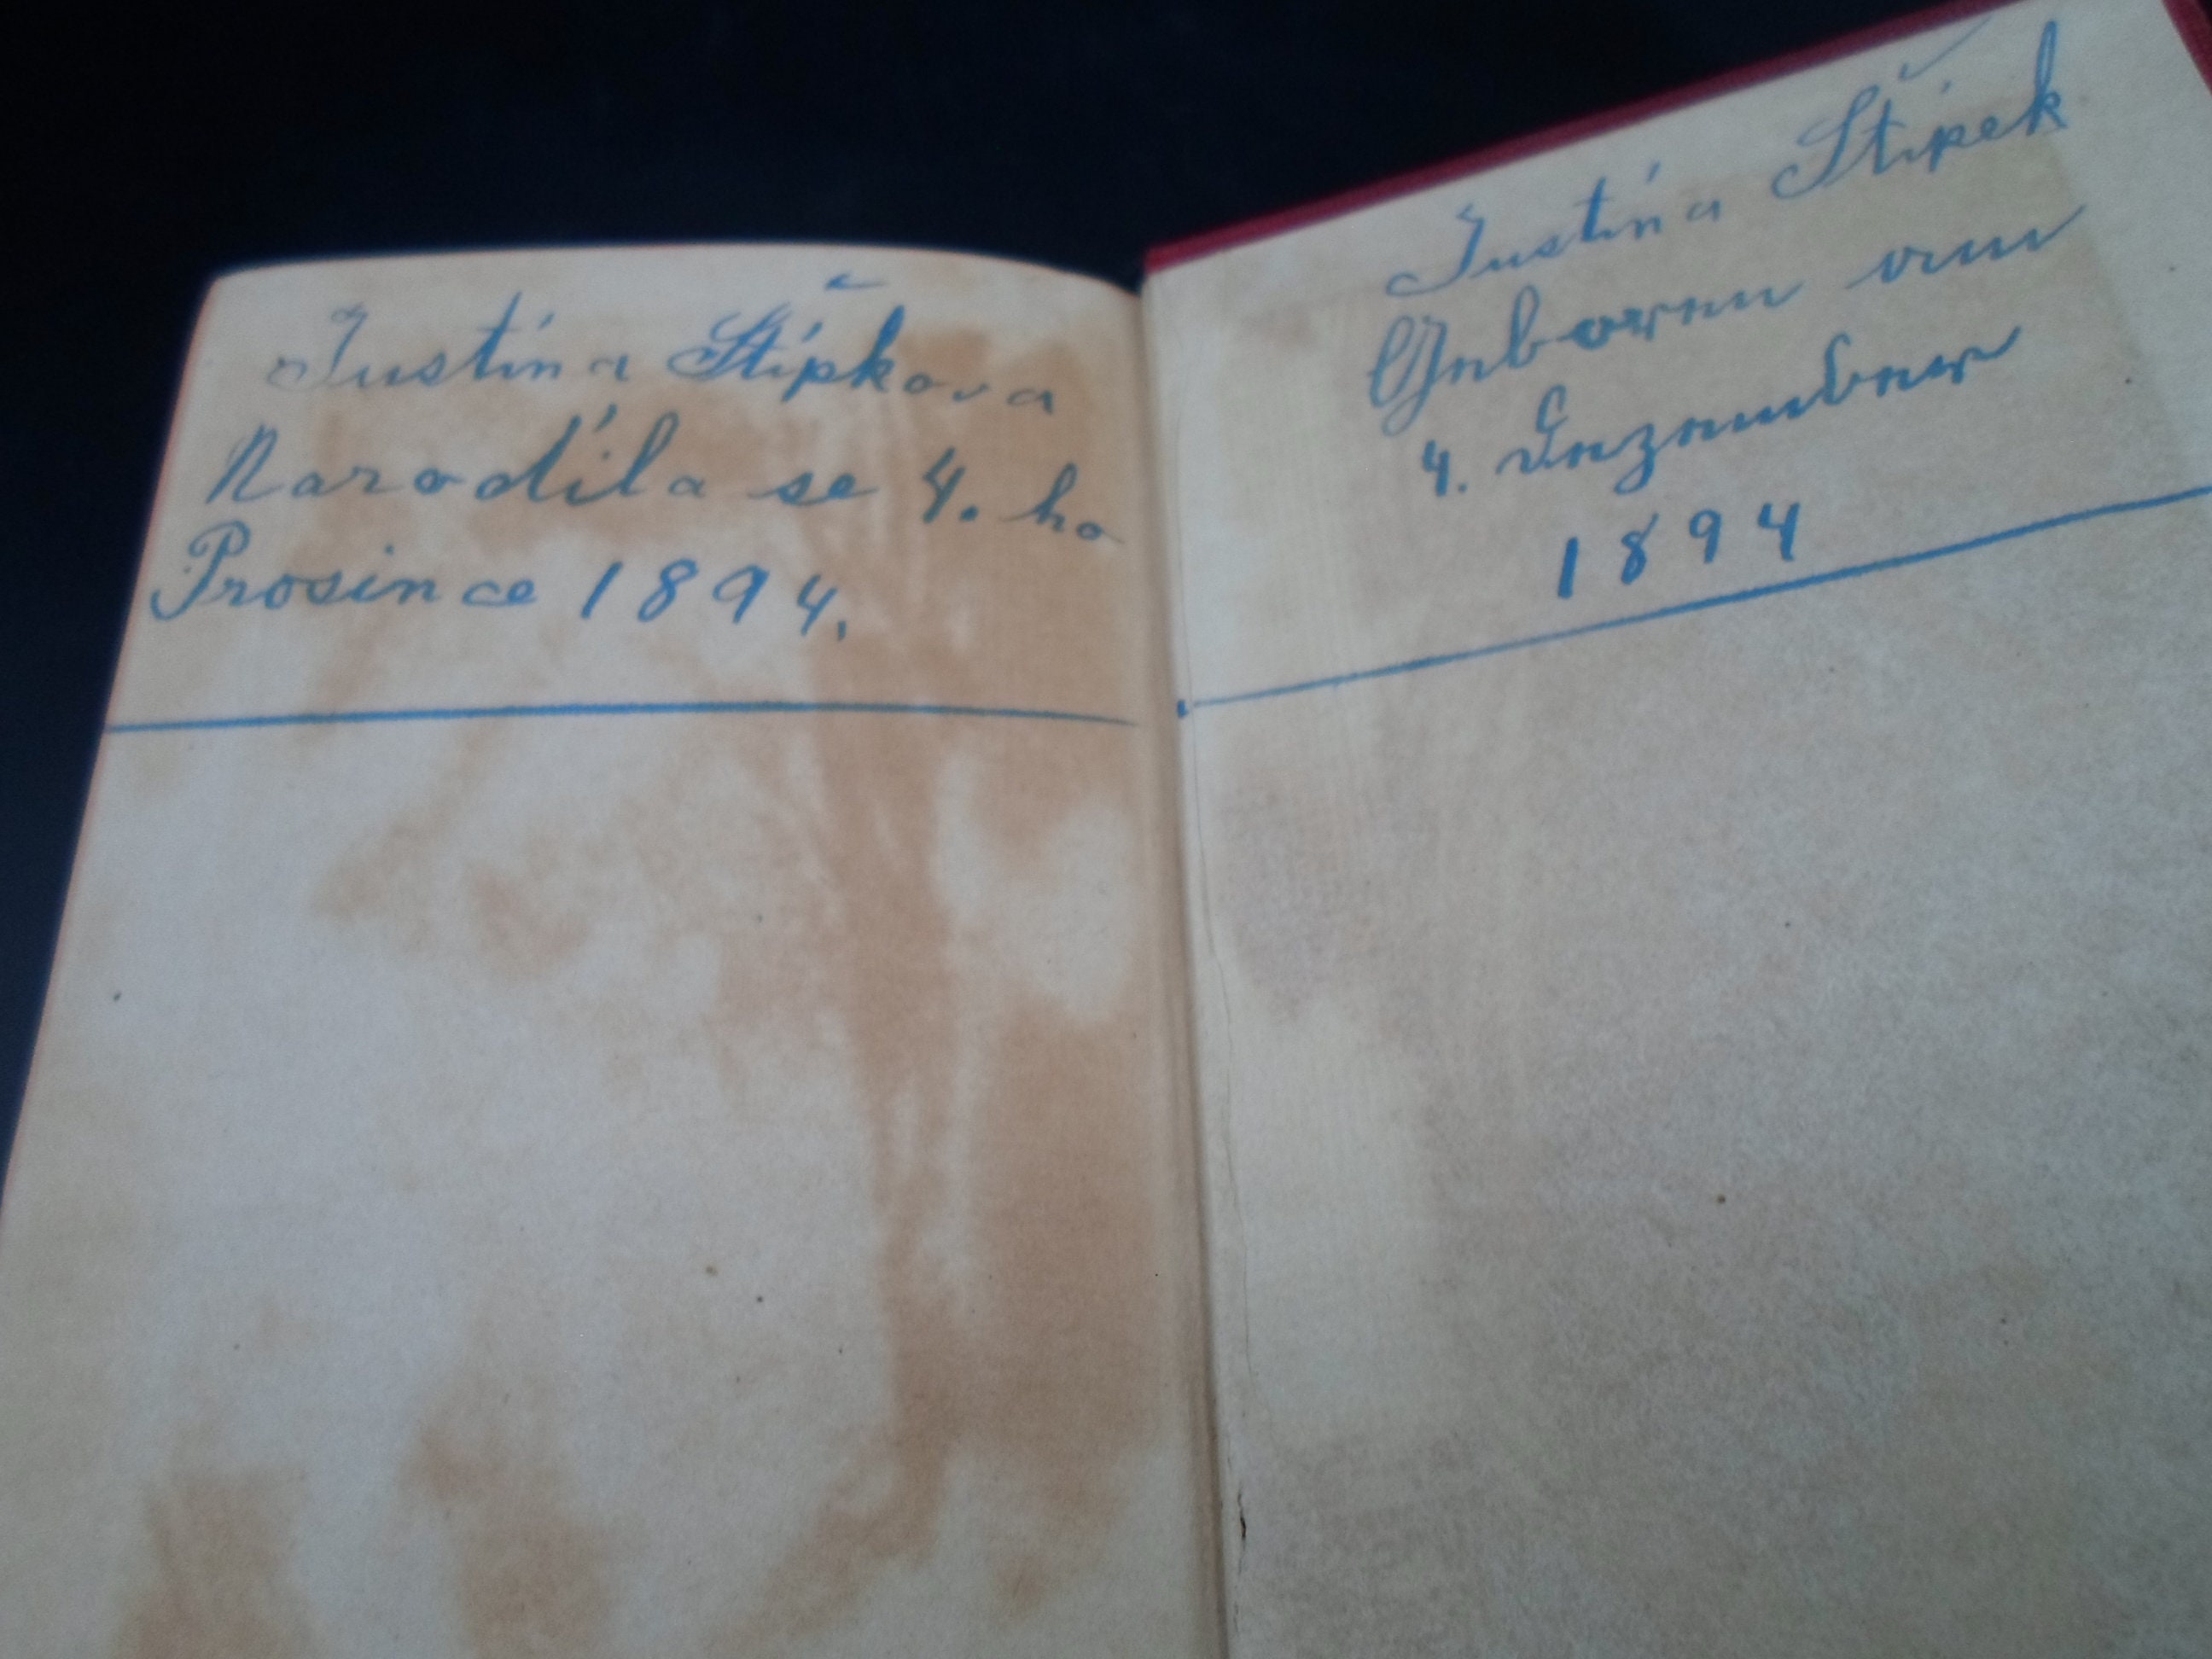 Justina Štípkova
Narodíla se 4. ho
Prosince 1894.
Justina Štípek
Geboren am
4. Dezember
1894